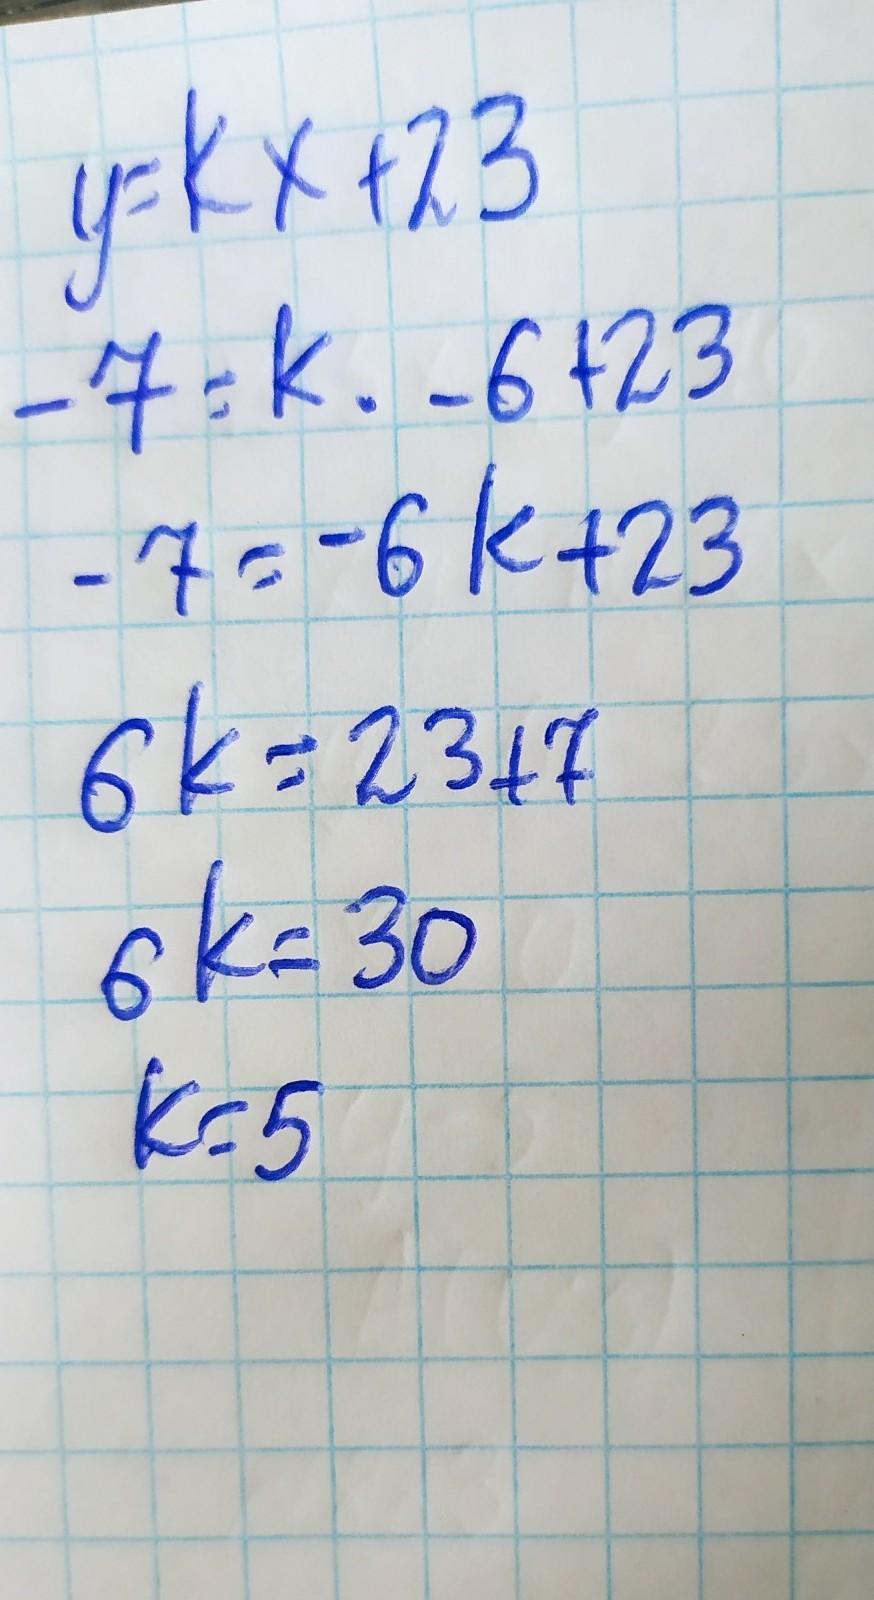 y=kx+23
-7=k. -6+23
-7=-6k+23
6k=23+7
6k=30
k=5